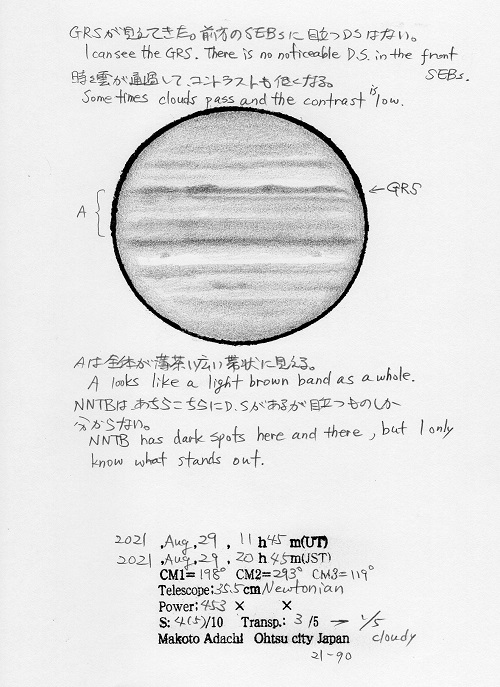 GRSが見えてきた。前方のSEBsに目立つDSはない。
I can see the GRS. There is no noticeable D.S. in the front
SEBs.
時々雲が通過して、コントラストも低くなる。
Sometimes clouds pass and the contrast is low.
←GRS
A
Aは全体が薄茶い広い帯状に見える。
A looks like a light brown band as a whole.
NNTBは、あちらこちらにD.Sがあるが目立つものしか
分からない。
NNTB has dark spots here and there, but I only
know what stands out.
2021 ,Aug,29 , 11 h45 m(UT)
2021 ,Aug,29 , 20 h45m(JST)
CM1= 198° CM2=293° CM3=119°
Telescope:35.5cm Newtonian
Power:453 × ×
S: 4(5)/10 Transp.: 3 /5 → 1/5
cloudy
Makoto Adachi Ohtsu city Japan
21-90